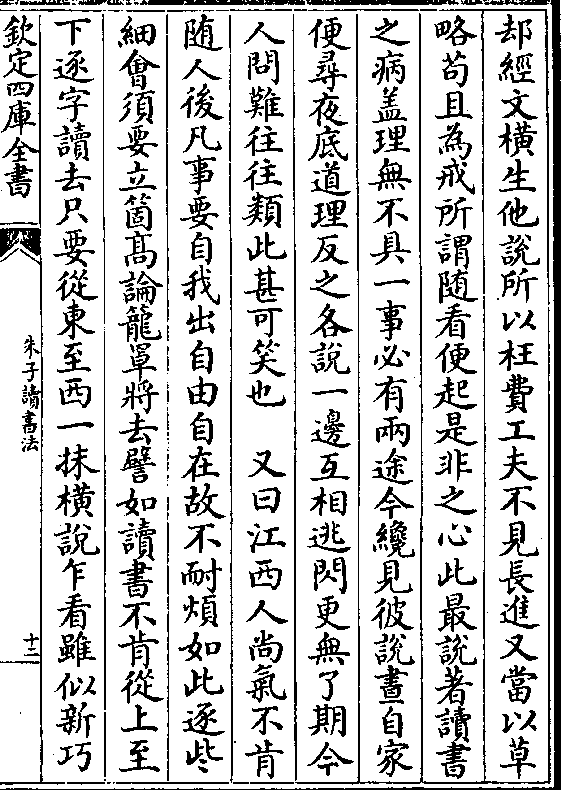 却經文橫生他說所以枉費工夫不見長進又當以草
略苟且為戒所謂随看便起是非之心此最說著讀書
之病盖理無不具一事必有兩途今纔見彼說晝自家
便尋夜底道理反之各說一邊互相逃閃更無了期今
人問難往往類此甚可笑也　又曰江西人尚氣不肯
随人後凡事要自我出自由自在故不耐煩如此逐些
細會須要立箇髙論籠罩將去譬如讀書不肯從上至
下逐字讀去只要從東至西一抹橫說乍看雖似新巧
欽定四庫全書
朱子讀書法
十二